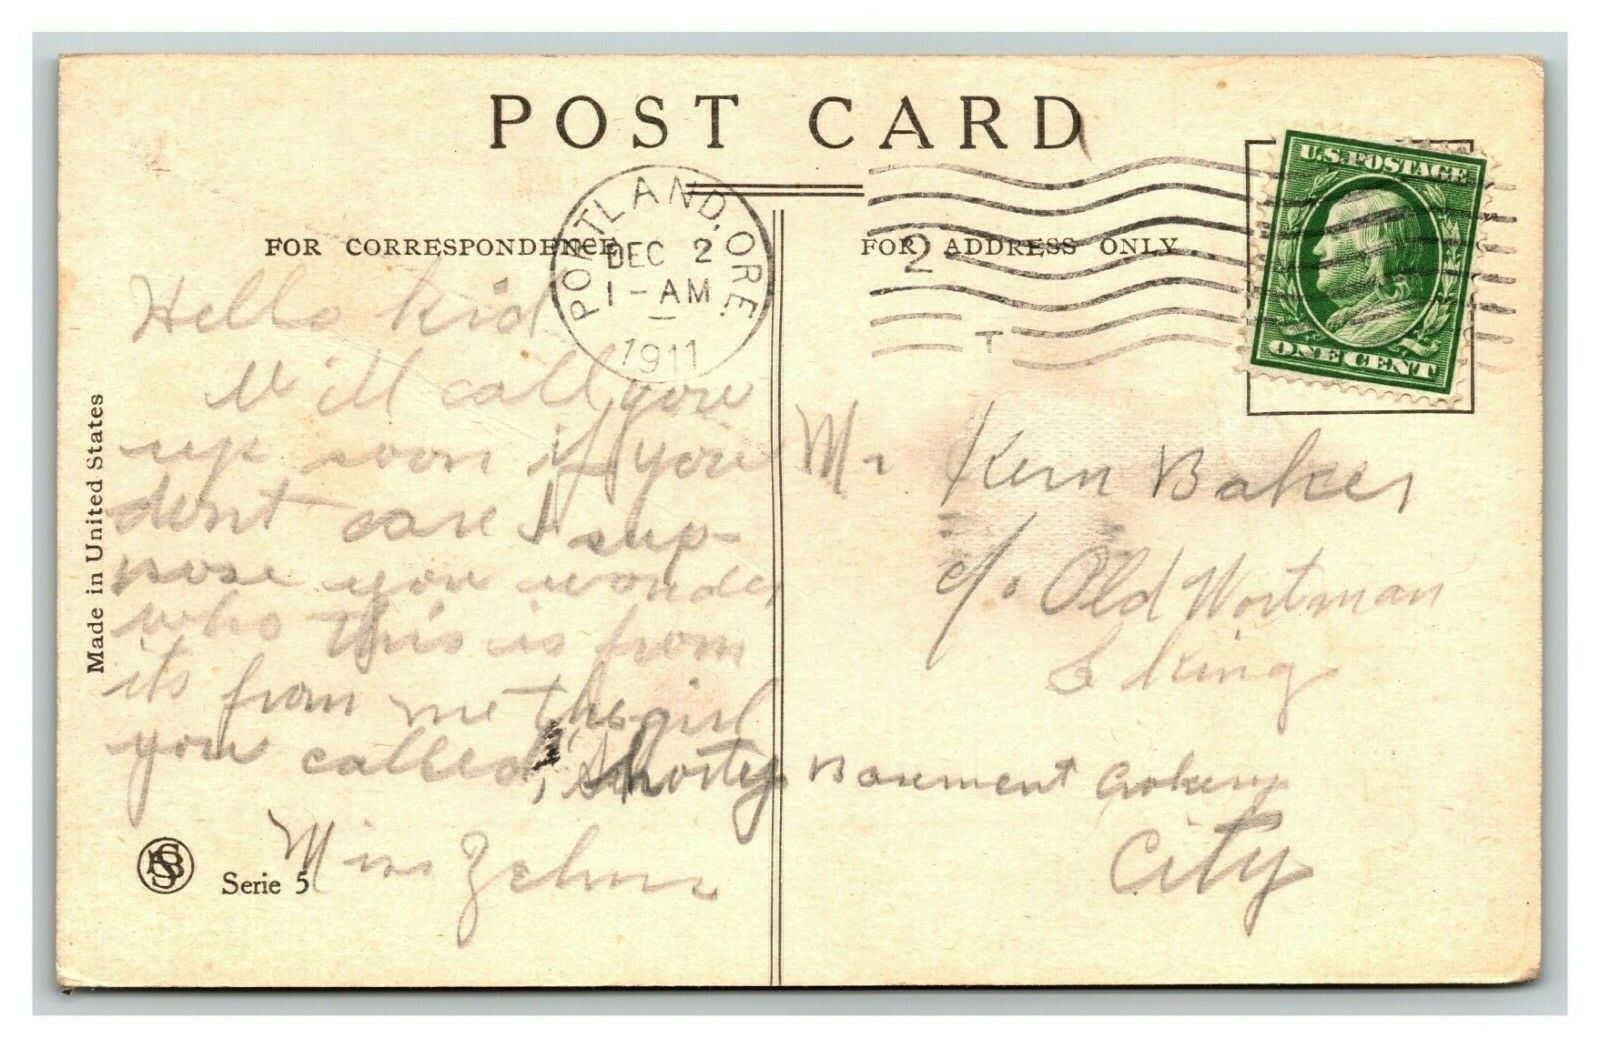 POST CARD
FOR CORRESPONDENCE
FOR ADDRESS ONLY
PORTLAND, ORE.
DEC 2
1-AM
1911
2
T
U.S. POSTAGE
ONE CENT
Hello Kid
Will call you
up soon if you
dont care I sup-
pose you wonder
who this is from
its from me the girl
you called, "shorty
Miss Zelma
Mr Kern Baker
c/o Old Wortman
& King
Basement Crokery
City
Made in United States
Serie 5